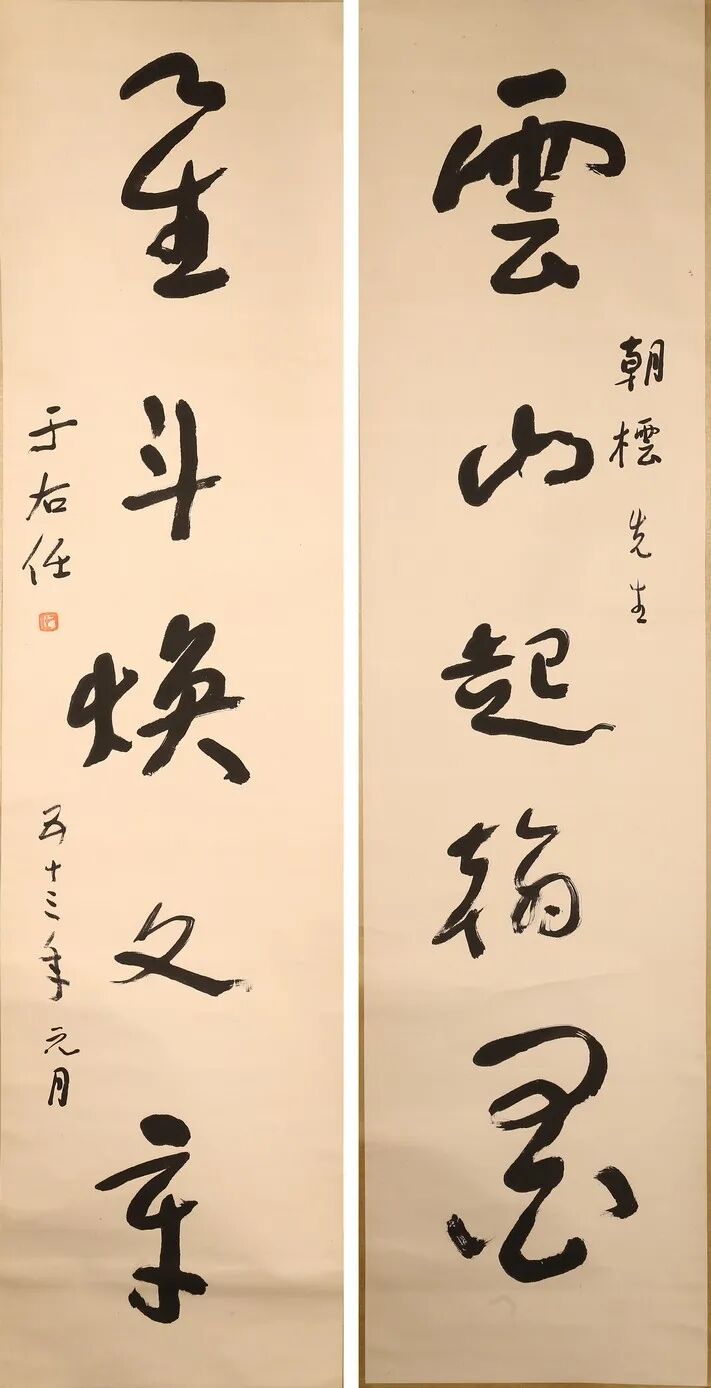 雲山起翰墨
朝橒先生
星斗焕文章
于右任
五十三年元月